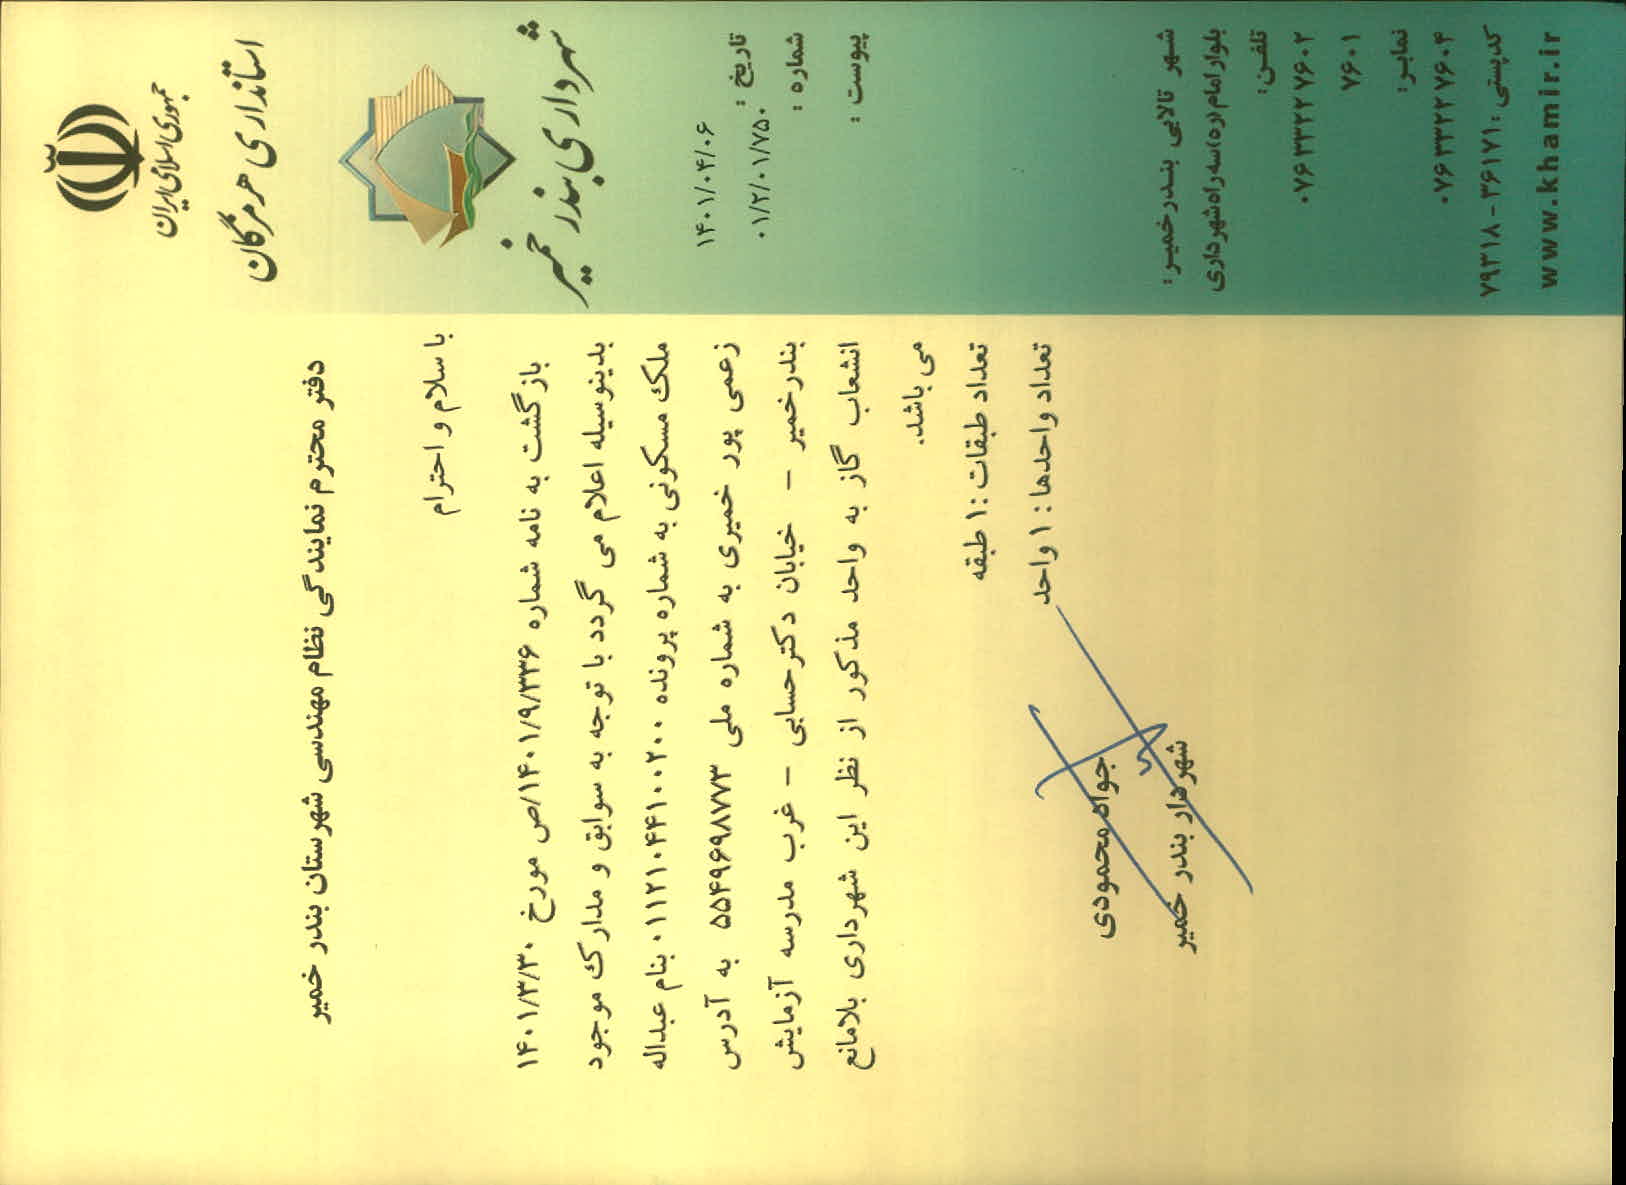 جمهوری اسلامی ایران
استانداری هرمزگان
شهرداری بندر خمیر
تاریخ : ۱۴۰۱/۰۴/۰۶
شماره : ۰۱/۲/۰۱/۷۵۰
پیوست :
دفتر محترم نمایندگی نظام مهندسی شهرستان بندر خمیر
با سلام و احترام
بازگشت به نامه شماره ۱۴۰۱/۹/۳۳۶/ص مورخ ۱۴۰۱/۳/۳۰
بدینوسیله اعلام می گردد با توجه به سوابق و مدارک موجود
ملک مسکونی به شماره پرونده ۰۱۱۲۱۰۴۴۱۰۰۲۰۰ بنام عبداله
زعمی پور خمیری به شماره ملی ۵۵۴۹۶۹۸۷۷۳ به آدرس
بندرخمیر – خیابان دکترحسابی – غرب مدرسه آزمایش
انشعاب گاز به واحد مذکور از نظر این شهرداری بلامانع
می باشد.
تعداد طبقات : ۱ طبقه
تعداد واحدها : ۱ واحد
جواد محمودی
شهردار بندر خمیر
شهر تالابی بندرخمیر :
بلوار امام (ره) سه راه شهرداری
تلفن:
۰۷۶۳۳۲۲۷۶۰۲
۷۶۰۱
نمابر:
۰۷۶۳۳۲۲۷۶۰۴
کدپستی : ۳۶۱۷۱ - ۷۹۳۱۸
www.khamir.ir